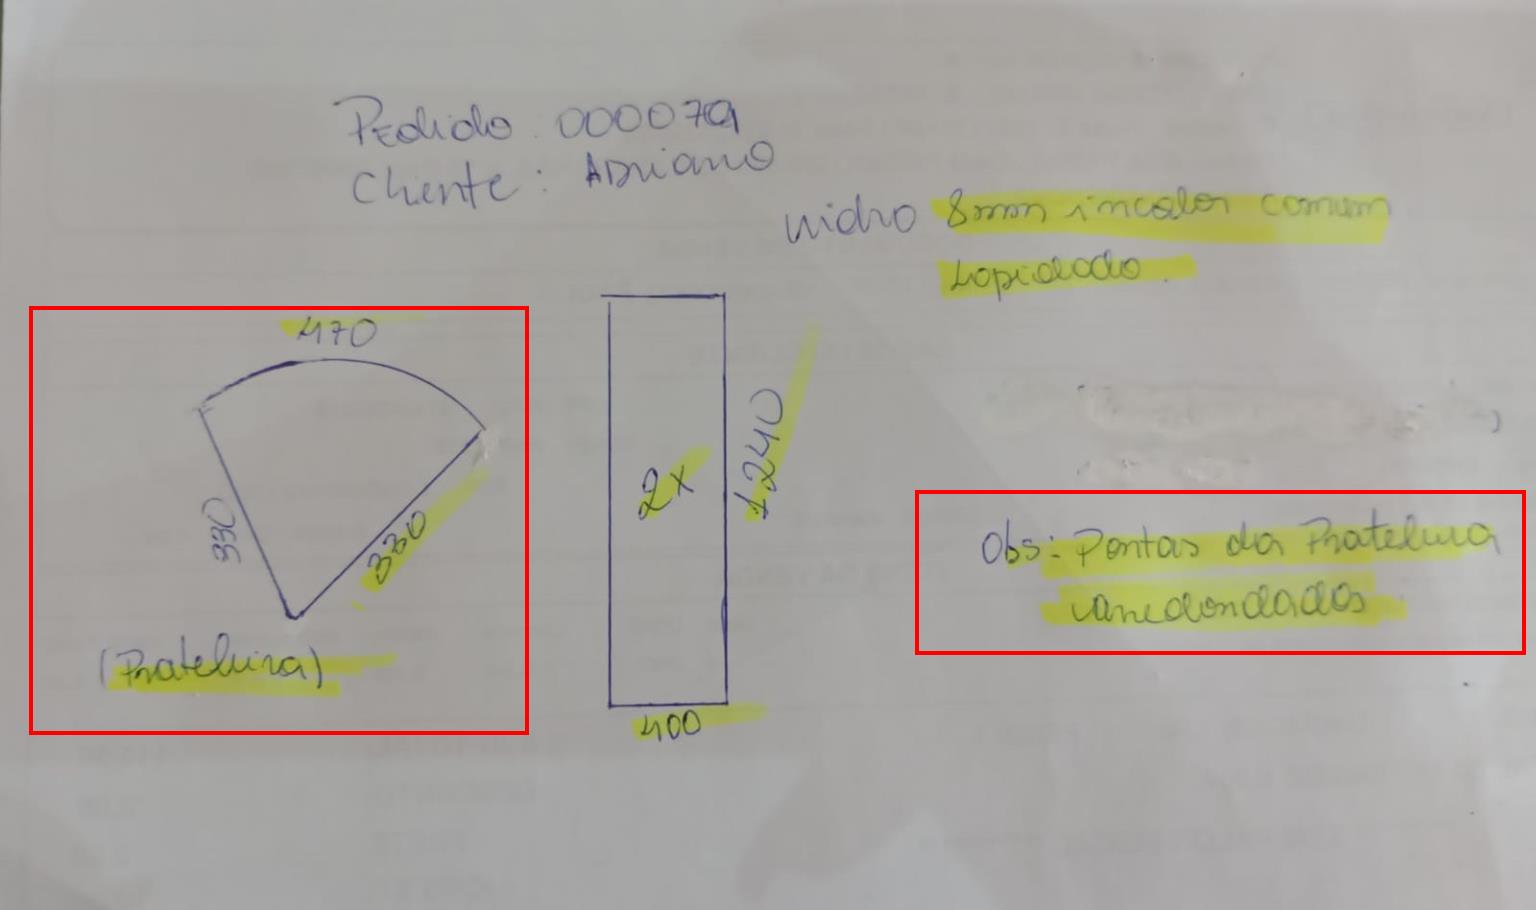 Pedido: 000079
Cliente: Adriano
vidro 8mm incolor comum
Lapidado.
470
330
330
(Prateleira)
2x
1240
400
Obs: Pontas da Prateleira
arredondadas